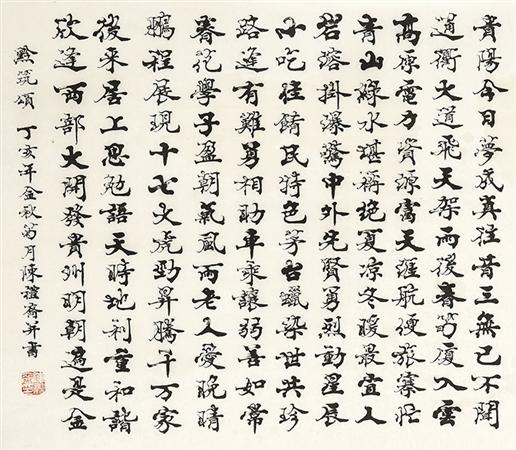 貴陽今日夢成真往昔三無已不聞
通衢大道飛天架雨後春笋廈入雲
高原電力資源富天涯航便旅寨忙
青山綠水堪稱絕夏凉冬暖最宜人
岩溶掛瀑驚中外先賢勇烈動星辰
小吃佳餚民特色茅台蠟染世共珍
路逢有難勇相助車乘讓弱善如常
學子盈朝氣風雨老人愛晚晴
鵬程展現十七大虎勁昇騰千万家
後来居上思勉語天時地利重和諧
欣逢西部大開發貴州明朝遍是金
黔筑頌 丁亥年金秋菊月陳禮齋并書